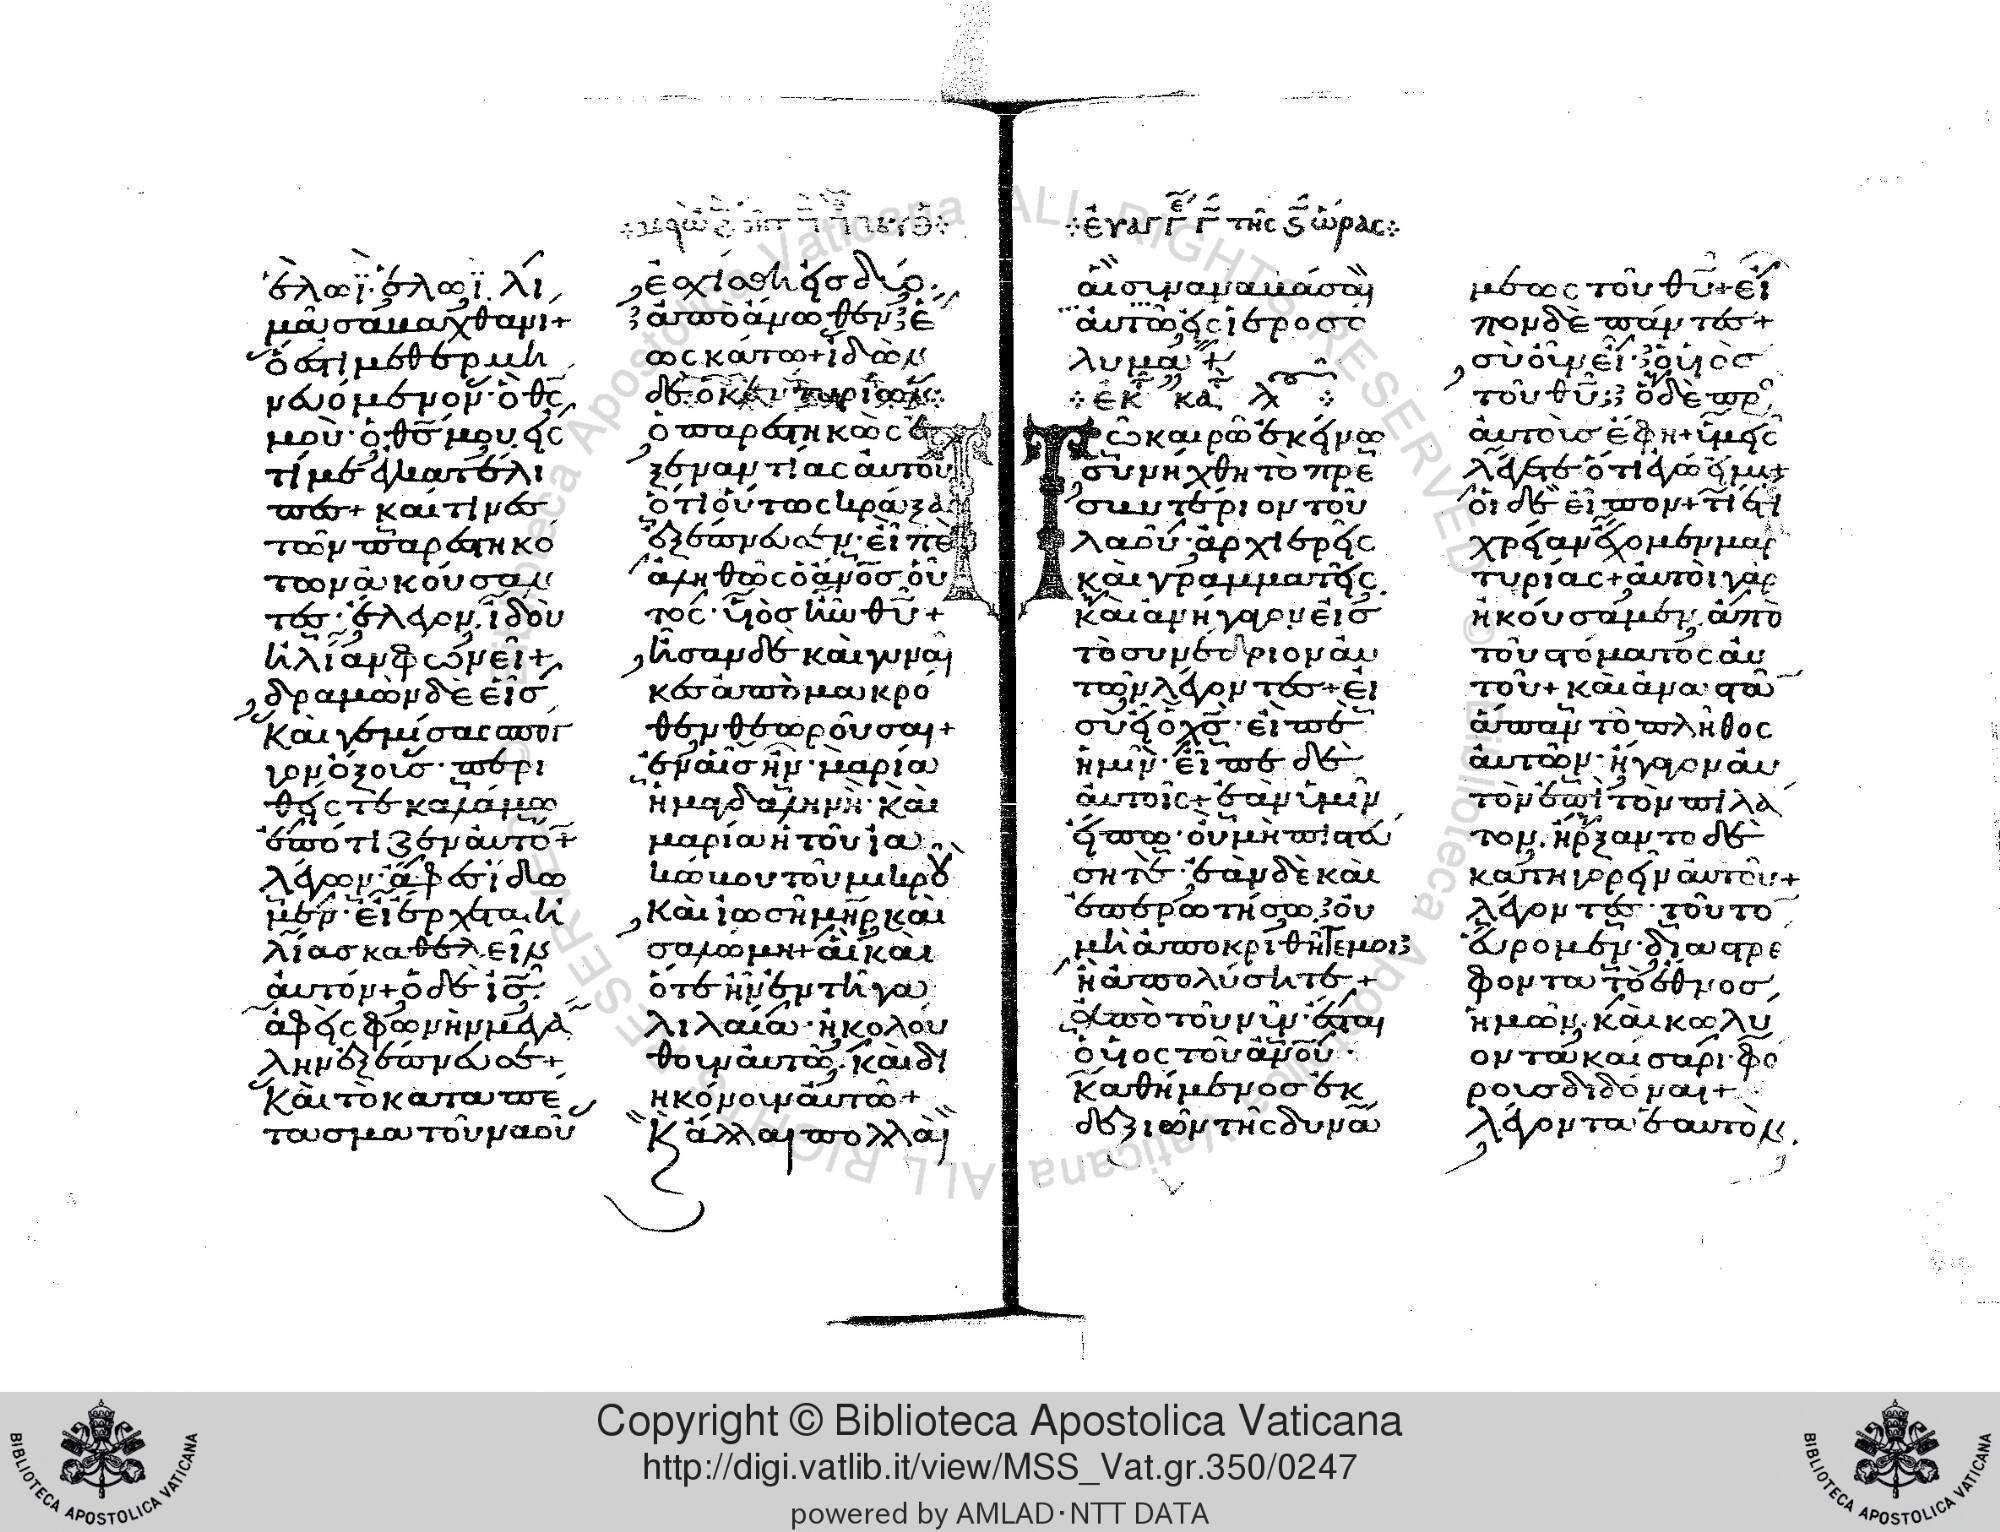 ἐλωῒ· ἐλωῒ. λι
μᾶ σαμαχθανι+
ὅ ἐστι μεθερμη
νευόμενον· ὁ θς
μου· ὁ θς μου, εἰς
τί με ἐγκατέλι
πες+ καί τινες
τῶν παρεστηκό
των ἀκούσαν
τες· ἔλεγον, ἰδοὺ
ἡλίαν φωνεῖ+
δραμὼν δὲ εἷς
καὶ γεμίσας σπόγ
γον ὄξους· περι
θείς τε καλάμω
ἐπότιζεν αὐτὸ+
λέγων· ἄφες ἴδω
μεν· εἰ ἔρχεται ἡ
λίας καθελεῖν
αὐτόν+ ὁ δὲ ις
ἀφεὶς φωνὴν μεγά
λην ἐξέπνευσε+
Καὶ τὸ καταπέ
τασμα τοῦ ναοῦ
ἐσχίσθη εἰς δύο.
ἀπὸ ἄνωθεν ἕ
ως κάτω+ ἰδὼν
δὲ ὁ κεντυρίων
ὁ παρεστηκὼς ἐ
ξεναντίας αὐτοῦ
ὅτι οὕτως κράξας
ἐξέπνευσεν· εἶπε
ἀληθῶς ὁ ἀνος οὗ
τος· υἱὸς ἦν θυ+
ἦσαν δὲ καὶ γυναῖ
κες ἀπὸ μακρό
θεν θεωροῦσαι+
ἐν αἷς ἦν· μαρία
ἡ μαγδαληνὴ· καὶ
μαρία ἡ τοῦ ἰα
κώβου τοῦ μικροῦ
Καὶ ἰωσῆ μηρ καὶ
σαλώμη+ αἳ καὶ
ὅτε ἦν ἐν τῆ γα
λιλαία· ἠκολού
θουν αὐτῶ. καὶ δι
ηκόνουν αὐτῶ+
Κ ἄλλαι πολλαὶ
εὐαγγ γ τῆς ϛ ὥρας
αἱ συναναβᾶσαι
αὐτῶ εἰς ἱεροσό
λυμα+
ἐκ κα λ
Τῶ καιρῶ ἐκείνω
συνήχθη τὸ πρε
σβυτέριον τοῦ
λαοῦ· ἀρχιερεῖς
καὶ γραμματεῖς.
καὶ ἀνήγαγον εἰς
τὸ συνέδριον ἑαυ
τῶν λέγοντες+ εἰ
σὺ εἶ ὁ χς· εἰπὲ
ἡμῖν· εἶπε δὲ
αὐτοῖς+ ἐὰν ὑμῖν
εἴπω· οὐ μὴ πιστεύ
σητε· ἐὰν δὲ καὶ
ἐπερωτήσω. οὐ
μὴ ἀποκριθῆτέ μοι
ἢ ἀπολύσητε+
ἀπὸ τοῦ νῦν· ἔσται
ὁ υἱος τοῦ ἀνου·
καθήμενος ἐκ
δεξιῶν τῆς δυνά
μεως τοῦ θυ+ εἶ
πον δὲ πάντες+
σὺ οὖν εἶ· ὁ υἱὸς
τοῦ θυ ὁ δὲ πρ
αὐτοὺς ἔφη+ ὑμεῖς
λέγετε ὅτι ἐγώ εἰμι+
οἱ δὲ εἶπον+ τί ἔτι
χρείαν ἔχομεν μαρ
τυρίας+ αὐτοὶ γὰρ
ἠκούσαμεν. ἀπὸ
τοῦ στόματος αὐ
τοῦ+ καὶ ἀναστὰν
ἅπαν τὸ πλῆθος
αὐτῶν· ἤγαγον αὐ
τὸν ἐπὶ τὸν πιλᾶ
τον. ἤρξαντο δὲ
κατηγορεῖν αὐτοῦ+
λέγοντες· τοῦτο
εὕρομεν· διαστρέ
φοντα τὸ ἔθνος
ἡμῶν. καὶ κωλύ
οντα καίσαρι· φό
ρους διδόναι+
λέγοντα ἑαυτὸν
Copyright © Biblioteca Apostolica Vaticana
http://digi.vatlib.it/view/MSS_Vat.gr.350/0247
powered by AMLAD·NTT DATA
BIBLIOTECA APOSTOLICA VATICANA
BIBLIOTECA APOSTOLICA VATICANA